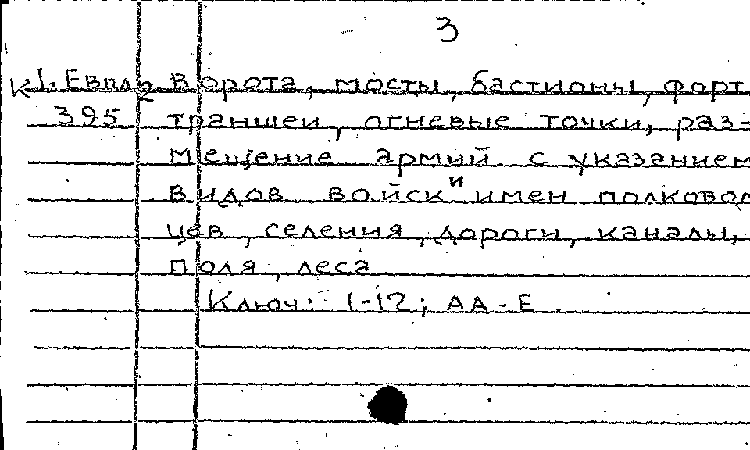 3
К 1. Евпл 2 ворота, мосты, бастионы, форт
395 траншеи, огневые точки, раз-
мещение армий с указанием
видов войск и имен полковод
цев, селения, дороги, каналы,
поля, леса
Ключ: 1-12; АА-Е